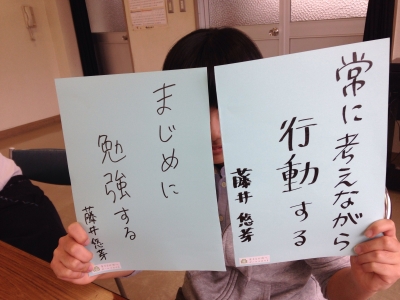 常に考えながら
行動する
藤井悠芽
まじめに
勉強する
藤井悠芽